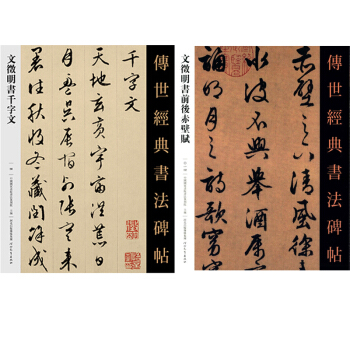 傳世經典書法碑帖
千字文
天地玄黃宇宙洪荒日
月盈昃辰宿列張寒來
暑往秋收冬藏閏餘成
文徵明書千字文
傳世經典書法碑帖
赤壁之下清風徐
水波不興舉酒屬
誦明月之詩歌
文徵明書前後赤壁賦